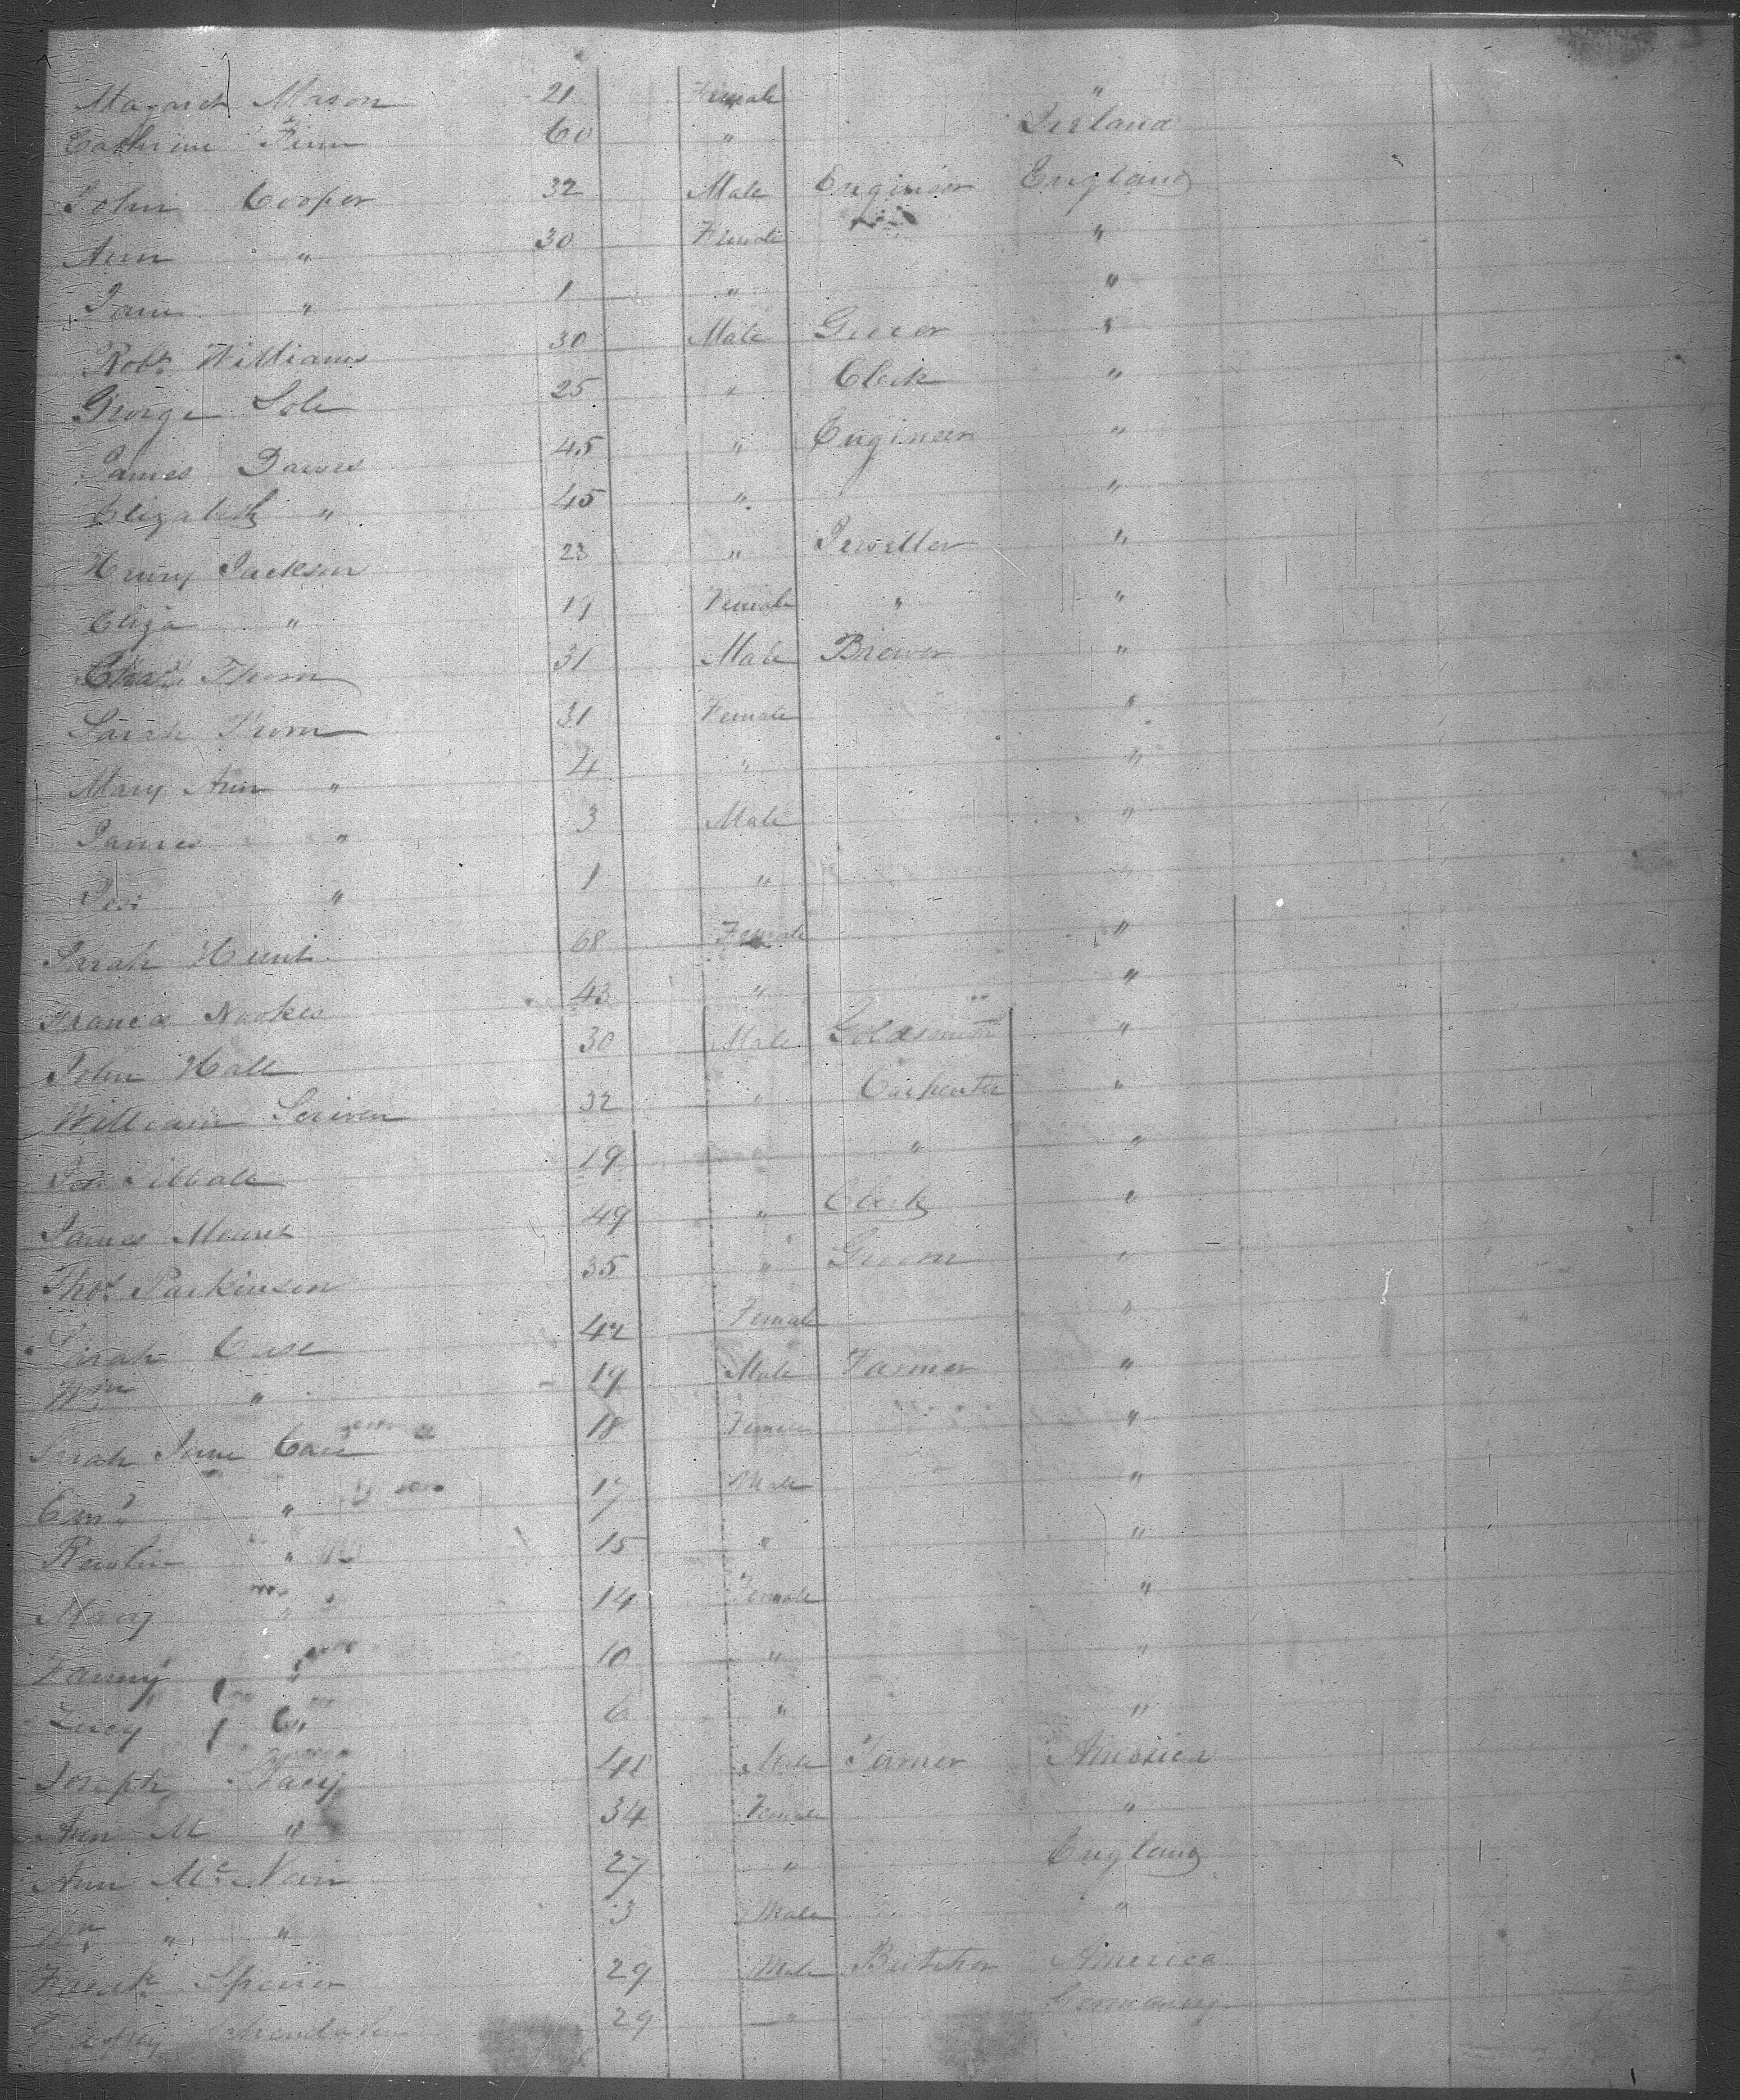 Magaret Mason 21 Female "
Cathrine Finn 60 " Ireland
John Cooper 32 Male Engineer England
Ann " 30 Female "
Jane " 1 " "
Robt. Williams 30 Male Grocer "
George Sole 25 " Clerk "
James Dawes 45 " Engineer "
Elizabeth " 45 " "
Henry Jackson 23 " Jeweller "
Eliza " 19 Female " "
Chas. Thorn 31 Male Brewer "
Sarah Thorn 31 Female "
Mary Ann " 4 " "
James " 3 Male "
" 1 " "
Sarah Hunt 68 Female "
Frances Noakes 43 " "
John Hall 30 Male Goldsmith "
William Scriven 32 " Carpenter "
19 " " "
James Mount 49 " Clerk "
Thos. Parkinson 35 " Groom "
Sarah Case 42 Female "
Wm " 19 Male Farmer "
Sarah Jane Case 18 Female "
" 17 Male "
" 15 " "
Mary " 14 Female "
Fanny " 10 " "
Lucy " 6 " "
Joseph 41 Male Turner America
Ann M " 34 Female "
Ann Mc. Nair 27 " England
Wm " " 3 Male "
Fredk. Spencer 29 Male America
29 " Germany